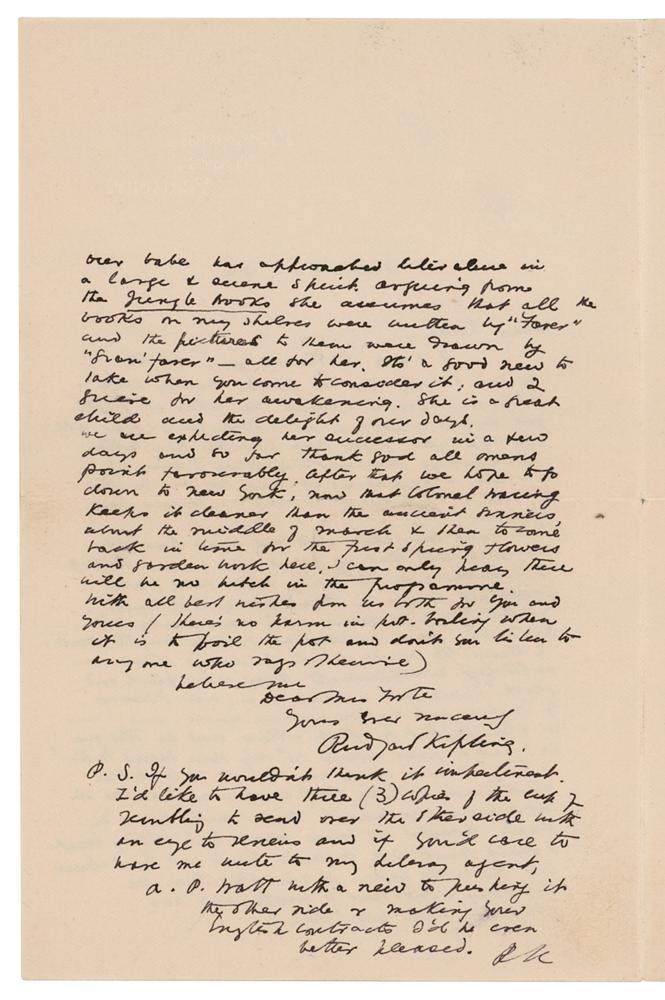 Our babe has approached literature in
a large & serene spirit. Arguing from
the Jungle Books she assumes that all the
books on my shelves were written by "Farver"
and the pictures to them were drawn by
"Gran'farver" – all for her. It's a good view to
take when you come to consider it; and I
grieve for her awakening. She is a great
child and the delight of our days.
We are expecting her successor in a few
days and so far thank God all omens
point favourably. After that we hope to go
down to New York, now that Colonel Waring
keeps it cleaner than the ancient
about the middle of March & then to come
back in time for the first spring flowers
and garden work here. I can only pray there
will be no hitch in the programme.
With all best wishes from us both for you and
yours (There's no harm in pot-boiling when
it is to boil the pot and don't you listen to
any one who says otherwise)
believe me
Dear Mrs Foote
Yours ever sincerely
Rudyard Kipling.
P. S. If you wouldn't think it impertinent.
I'd like to have three (3) copies of the Cup of
Trembling to send over the other side with
an eye to reviews and if you'd care to
have me write to my literary agent,
A. P. Watt with a view to pushing it
the other side or making your
English contracts I'd be even
better pleased. RK